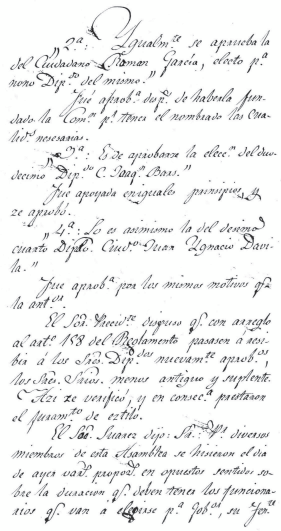 "2.ª: Ygualm.te se aprueba la
del Ciudadano Ramon García, electo p.ª
nono Dip.do del mismo."
Fué aprob.ª desp.s de haberla fun-
dado la Com.on p.r tener el nombrado las cua-
lid.s nesesarias.
"3.ª: Es de aprobarse la elec.on del duo-
decimo Dip.do C. Joaq.n Bars."
Fué apoyada en iguales prinsipios y
se aprobó.
"4.ª: Lo es asimismo la del desimo
cuarto Dip.do Ciud.no Juan Ygnacio Davi-
la."
Fue aprob.ª por los mismos motivos q.e
la ant.or
El Sor. Precid.te dispuso q.e con arreglo
al art.o 158 del Reglamento pasasen a resi-
bir á los Sres. Dip.dos nuevam.te aprob.os
los Sres. Srios. menos antiguo y suplente.
Azi se verificó, y en consec.ª prestaron
el juram.to de estilo.
El Sor. Suarez dijo: Sr.: Vs. diversos
miembros de esta Asamblea se hisieron el dia
de ayer var.s propos.on en opuestos sentidos so-
bre la duracion q.e deben tener los funciona-
rios q.e van a elegirse p.ª Gob.or, su Ten.te